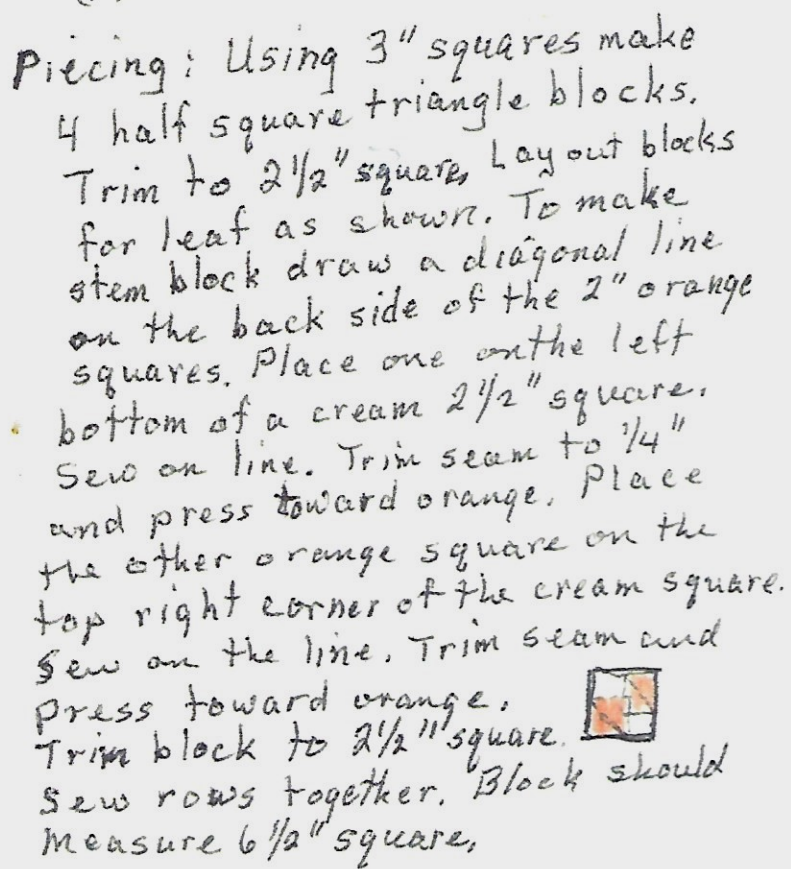 Piecing: Using 3" squares make
4 half square triangle blocks.
Trim to 2 1/2" square. Lay out blocks
for leaf as shown. To make
stem block draw a diagonal line
on the back side of the 2" orange
squares. Place one on the left
bottom of a cream 2 1/2" square.
Sew on line. Trim seam to 1/4"
and press toward orange. Place
the other orange square on the
top right corner of the cream square.
Sew on the line. Trim seam and
press toward orange.
Trim block to 2 1/2" square.
Sew rows together. Block should
Measure 6 1/2" square.